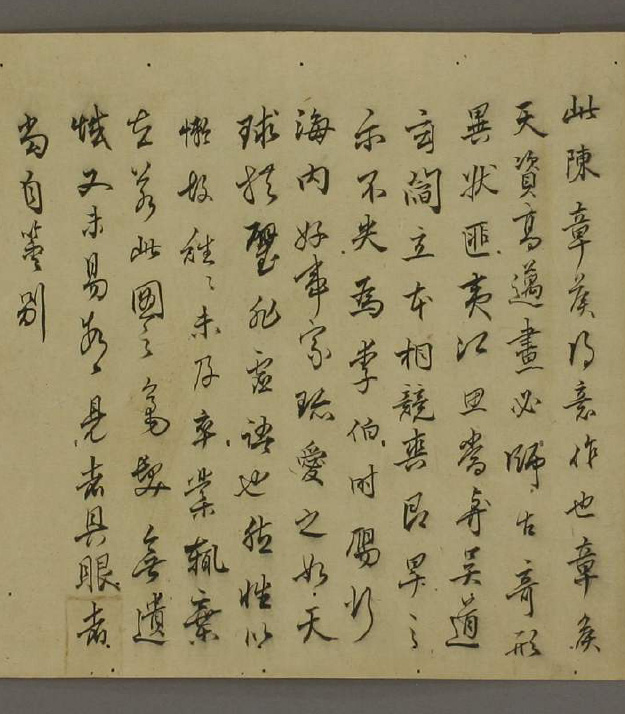 此陳章侯得意作也章侯
天資高邁畫必師古奇形
異狀匪夷所思當與吳道
玄閻立本相競爽即卑之
亦不失為李伯時陽行
海內好事家珍愛之如天
球拱璧非虛語也然性以
懶故往往未及卒業輒棄
去若此圖之
無遺
憾又未易數數見者具眼者
當自鑒別